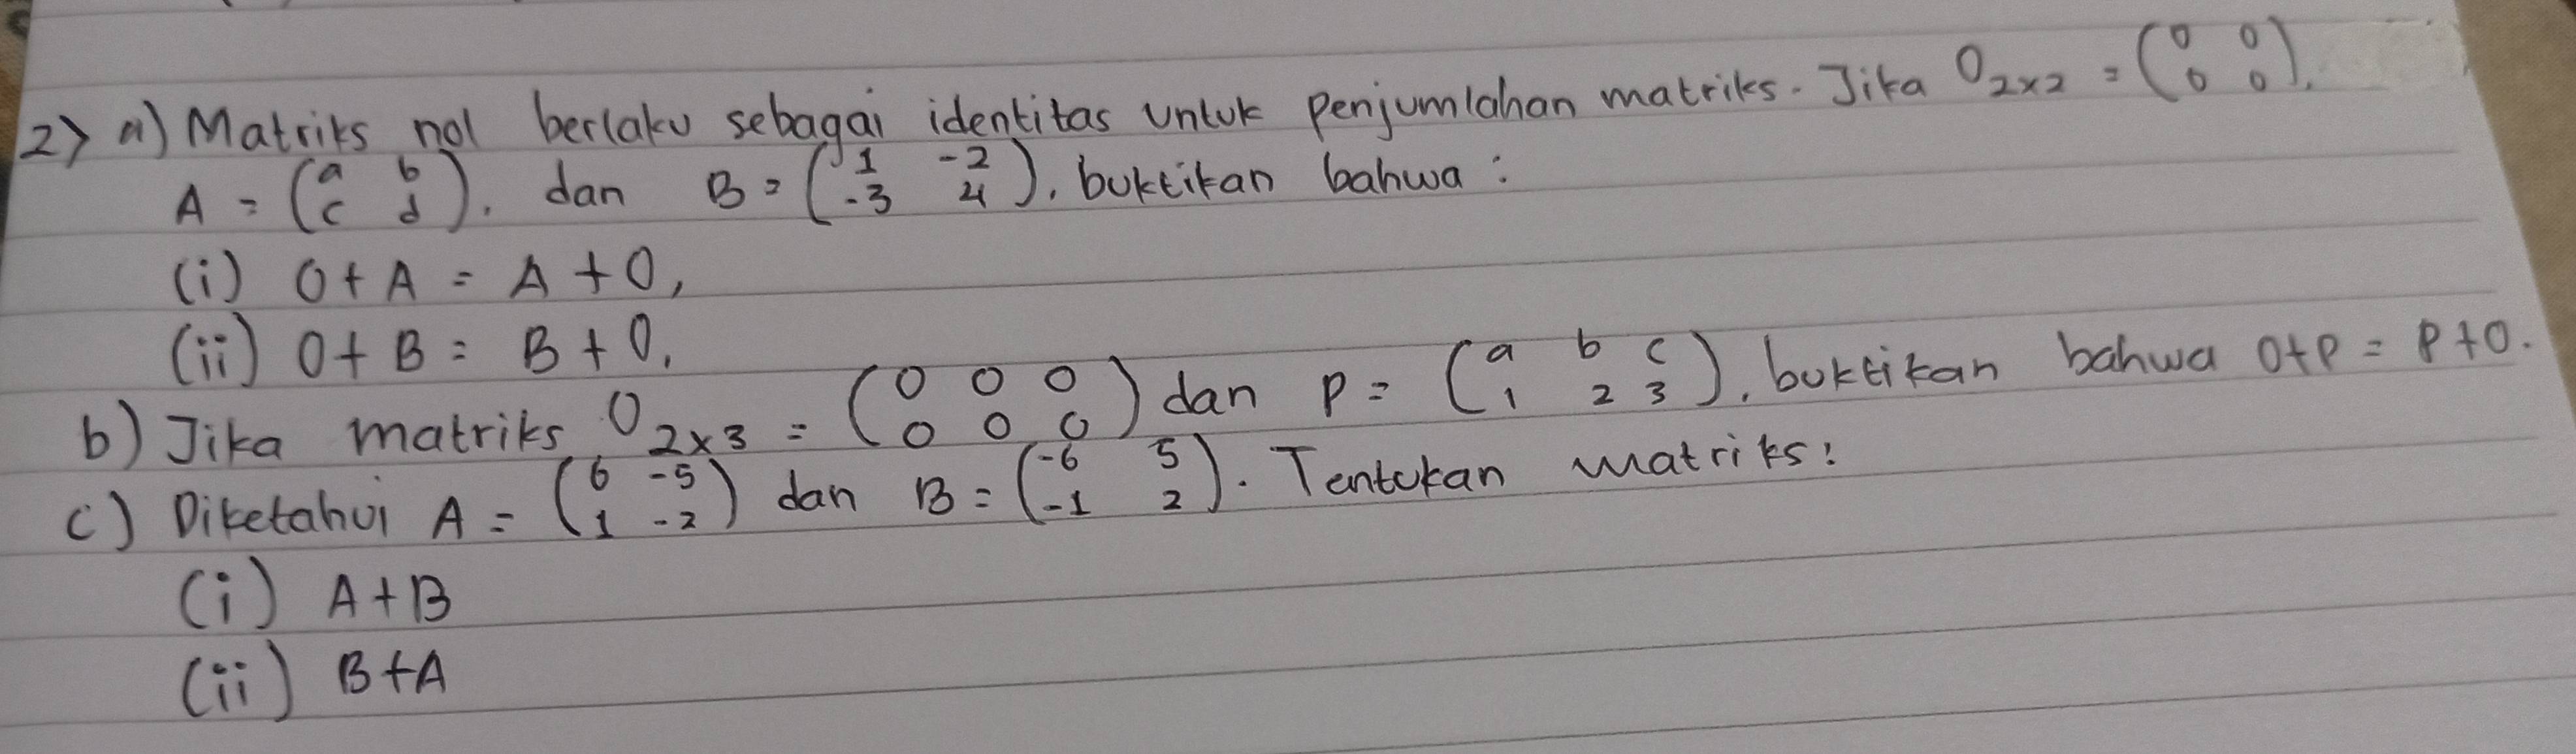 2) a) Matriks nol berlaku sebagai identitas untuk penjumlahan matriks. Jika O₂ₓ₂ = (0 0; 0 0).
A = (a b; c d). dan B = (1 -2; -3 4), buktikan bahwa :
(i) O + A = A + O,
(ii) O + B = B + O.
b) Jika matriks O₂ₓ₃ = (0 0 0; 0 0 0) dan P = (a b c; 1 2 3), buktikan bahwa O+P = P+O.
c) Diketahui A = (6 -5; 1 -2) dan B = (-6 5; -1 2). Tentukan matriks:
(i) A+B
(ii) B+A